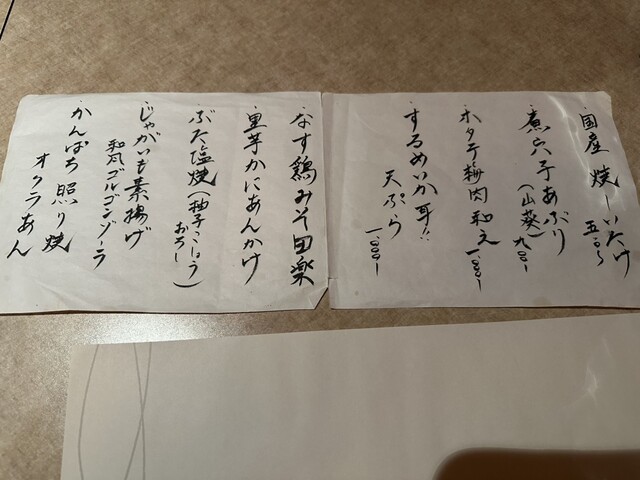 ・国産 焼しいたけ
五〇〇〜
・煮穴子あぶり
(山葵) 九〇〇〜
・ホタテ梅肉和え 一、〇〇〇〜
・するめいか耳の
天ぷら
一、〇〇〇〜
・なす鶏みそ田楽
・里芋かにあんかけ
・ぶた塩焼(柚子こしょう
おろし)
・じゃがいも素揚げ
和風ゴルゴンゾーラ
・かんぱち照り焼
オクラあん